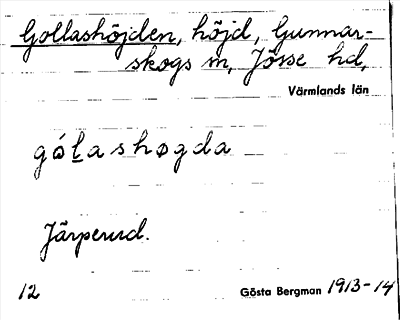 Gollashöjden, höjd, Gunnar-
skogs sn, Jösse hd,
Värmlands län
gólashøgda
Järperud.
12
Gösta Bergman 1913-14